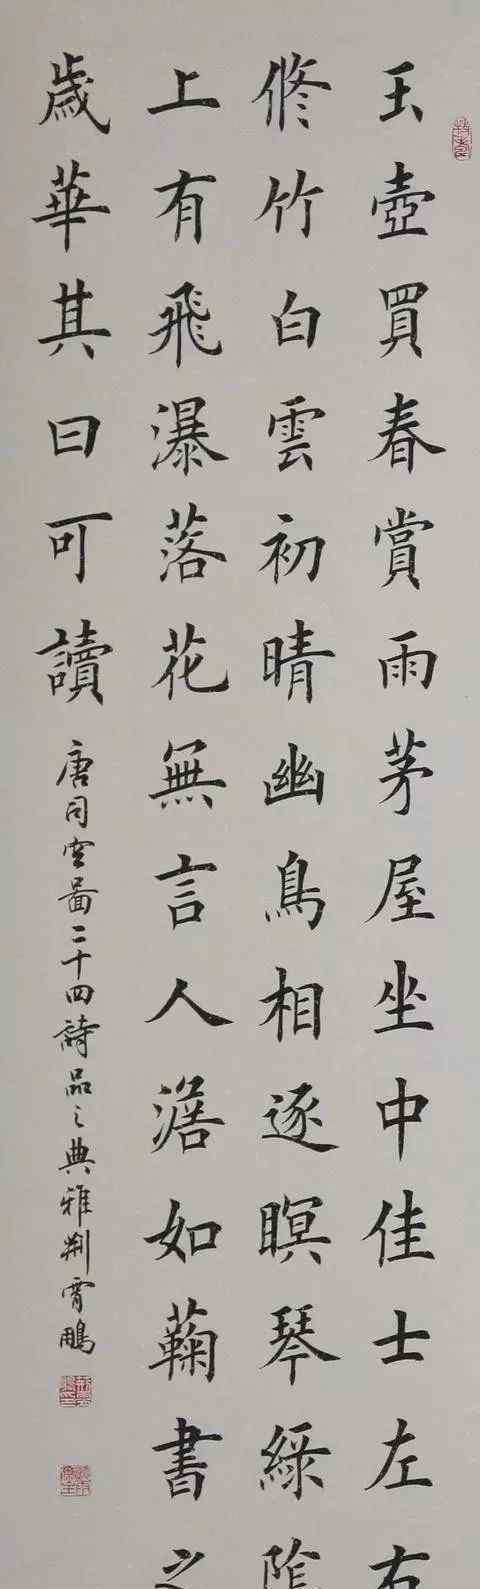 玉壺買春賞雨茅屋坐中佳士左右
修竹白雲初晴幽鳥相逐瞑琴綠陰
上有飛瀑落花無言人澹如菊書之
歲華其曰可讀
唐司空圖二十四詩品之典雅荆霄鵬